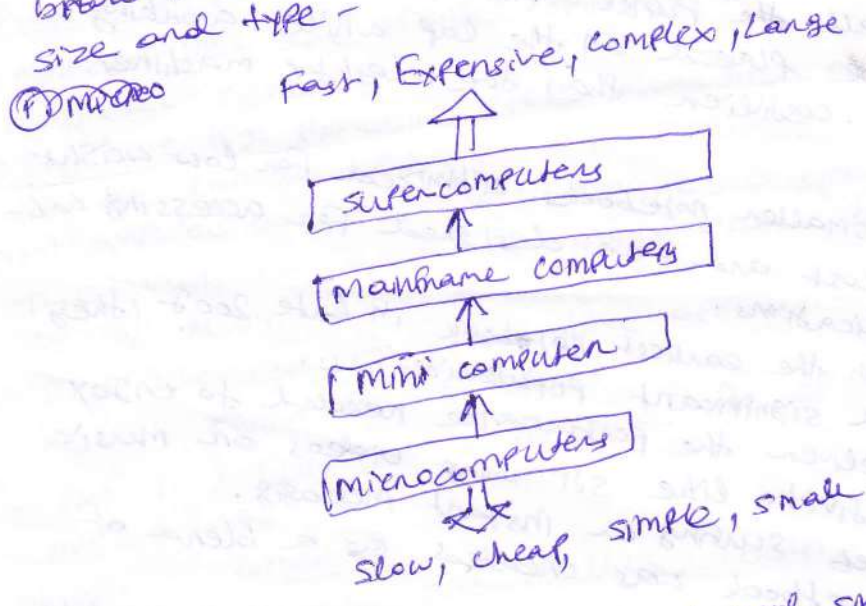 size and type -
Fast, Expensive, complex, Large
supercomputers
Mainframe computers
Mini computer
Microcomputers
slow, cheap, simple, small